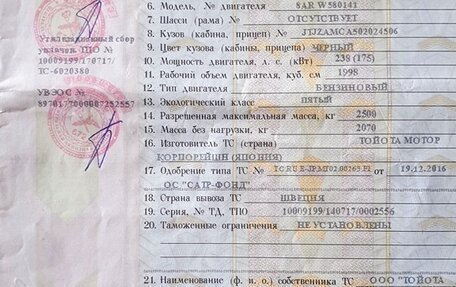 6. Модель, № двигателя 8AR W580141
7. Шасси (рама) № ОТСУТСТВУЕТ
8. Кузов (кабина, прицеп) № JTJZAMCA502024506
9. Цвет кузова (кабины, прицепа) ЧЕРНЫЙ
10. Мощность двигателя, л. с. (кВт) 238 (175)
11. Рабочий объем двигателя, куб. см 1998
12. Тип двигателя БЕНЗИНОВЫЙ
13. Экологический класс ПЯТЫЙ
14. Разрешенная максимальная масса, кг 2500
15. Масса без нагрузки, кг 2070
16. Изготовитель ТС (страна) ТОЙОТА МОТОР
КОРПОРЕЙШН (ЯПОНИЯ)
17. Одобрение типа ТС № от 19.12.2016
ОС "САТР-ФОНД"
18. Страна вывоза ТС ШВЕЦИЯ
19. Серия, № ТД, ТПО 10009199/140717/0002556
20. Таможенные ограничения НЕ УСТАНОВЛЕНЫ
21. Наименование (ф. и. о.) собственника ТС ООО "ТОЙОТА
Утилизационный сбор
уплачен. ТПО №
10009199/170717/
ТС-6020380
УВЭОС №